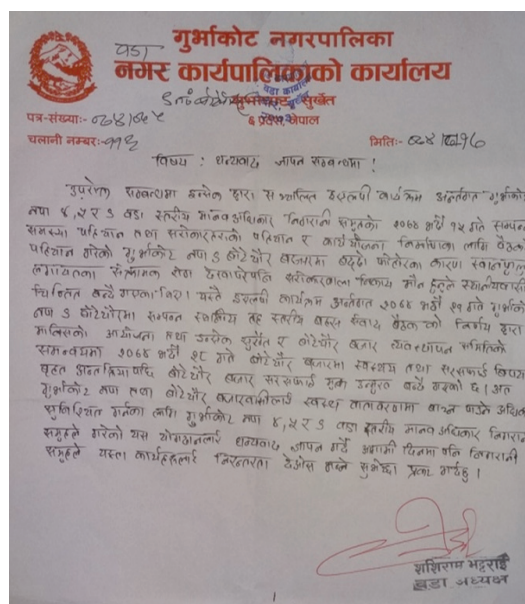 गुर्भाकोट नगरपालिका
वडा
नगर कार्यपालिकाको कार्यालय
सुर्खेत
६ प्रदेश, नेपाल
पत्र-संख्याः- ०७४/०७५
चलानी नम्बरः- ११६
मितिः-
विषय : धन्यवाद ज्ञापन सम्बन्धमा ।
उपरोक्त सम्बन्धमा इन्सेक द्वारा सञ्चालित कार्यक्रम अन्तर्गत गुर्भाकोट
नपा ४, ५ र ७ वडा स्तरीय मानव अधिकार निगरानी समूहको २०७४ भदौ १५ गते सम्पन्न
समस्या पहिचान तथा सरोकारवालाको पहिचान र कार्ययोजना निर्माणका लागि बैठक
पहिचान गरेको गुर्भाकोट नपा ७ बोटेचौर बजारमा बढ्दो फोहोरका कारण
लगायतका सेवा सरोकारवाला निकाय मौन हुनुले स्थानीयवासी
चिन्तित बन्दै गएका थिए। यस्तै कार्यक्रम अन्तर्गत २०७४ भदौ २१ गते गुर्भाकोट
नपा ७ बोटेचौरमा सम्पन्न स्थानीय तह स्तरीय बहस संवाद बैठकको निर्णय द्वारा
आयोजना तथा इन्सेक सुर्खेत र बोटेचौर बजार व्यवस्थापन समितिको
समन्वयमा २०७४ भदौ २८ गते बोटेचौर बजारमा स्वास्थ्य तथा सरसफाई विषयक
बृहत अन्तरक्रिया पछि बोटेचौर बजार सरसफाई मुक्त बन्दै गएको छ। अतः
गुर्भाकोट नपा तथा बोटेचौर बजारवासीलाई स्वस्थ वातावरणमा बाच्न पाउने अधिकार
सुनिश्चित गर्नका लागि गुर्भाकोट नपा ४, ५ र ७ वडा स्तरीय मानव अधिकार निगरानी
समूहले गरेको यस योगदानलाई धन्यवाद ज्ञापन गर्दै आगामी दिनमा पनि निगरानी
समूहले यस्ता कार्यहरूलाई निरन्तरता देओस भन्ने शुभेच्छा प्रकट गर्दछु ।
शशिराम भट्टराई
वडा अध्यक्ष